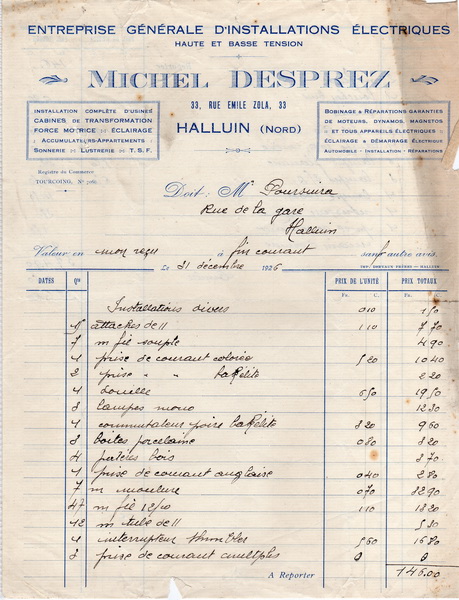 ENTREPRISE GÉNÉRALE D'INSTALLATIONS ÉLECTRIQUES
HAUTE ET BASSE TENSION
MICHEL DESPREZ
33, RUE EMILE ZOLA, 33
HALLUIN (NORD)
INSTALLATION COMPLÈTE D'USINES
CABINES DE TRANSFORMATION
FORCE MOTRICE ET ÉCLAIRAGE
ACCUMULATEURS-APPARTEMENTS
SONNERIE DE LUSTRERIE DE T.S.F.
BOBINAGE & RÉPARATIONS GARANTIES
DE MOTEURS, DYNAMOS, MAGNETOS
ET TOUS APPAREILS ÉLECTRIQUES
ÉCLAIRAGE & DÉMARRAGE ÉLECTRIQUE
AUTOMOBILE - INSTALLATION - RÉPARATIONS
Registre du Commerce
TOURCOING, N°
Doit: Mr
Rue de la gare
Halluin
Valeur en mon reçu à fin courant sauf autre avis.
Le 31 décembre 1926
DATES Qté PRIX DE L'UNITÉ PRIX TOTAUX
Fr. C. Fr. C.
Installations divers 010 150
attaches de 11 110 7 70
7 m fil souple 4 90
prise de courant colorée 520 10 40
2 prise " " bakélite 2 20
douille 650 19 50
3 lampes mono 12 30
4 commutateur poire bakélite 320 9 60
3 boites porcelaine 080 3 20
4 patères bois 3 70
prise de courant anglaise 040 2 80
7 m moulure 070 32 90
47 m fil 12/10 110 13 20
12 m tube de 11 5 30
interrupteur 560 16 80
3 prise de courant multiples
A Reporter 146.00